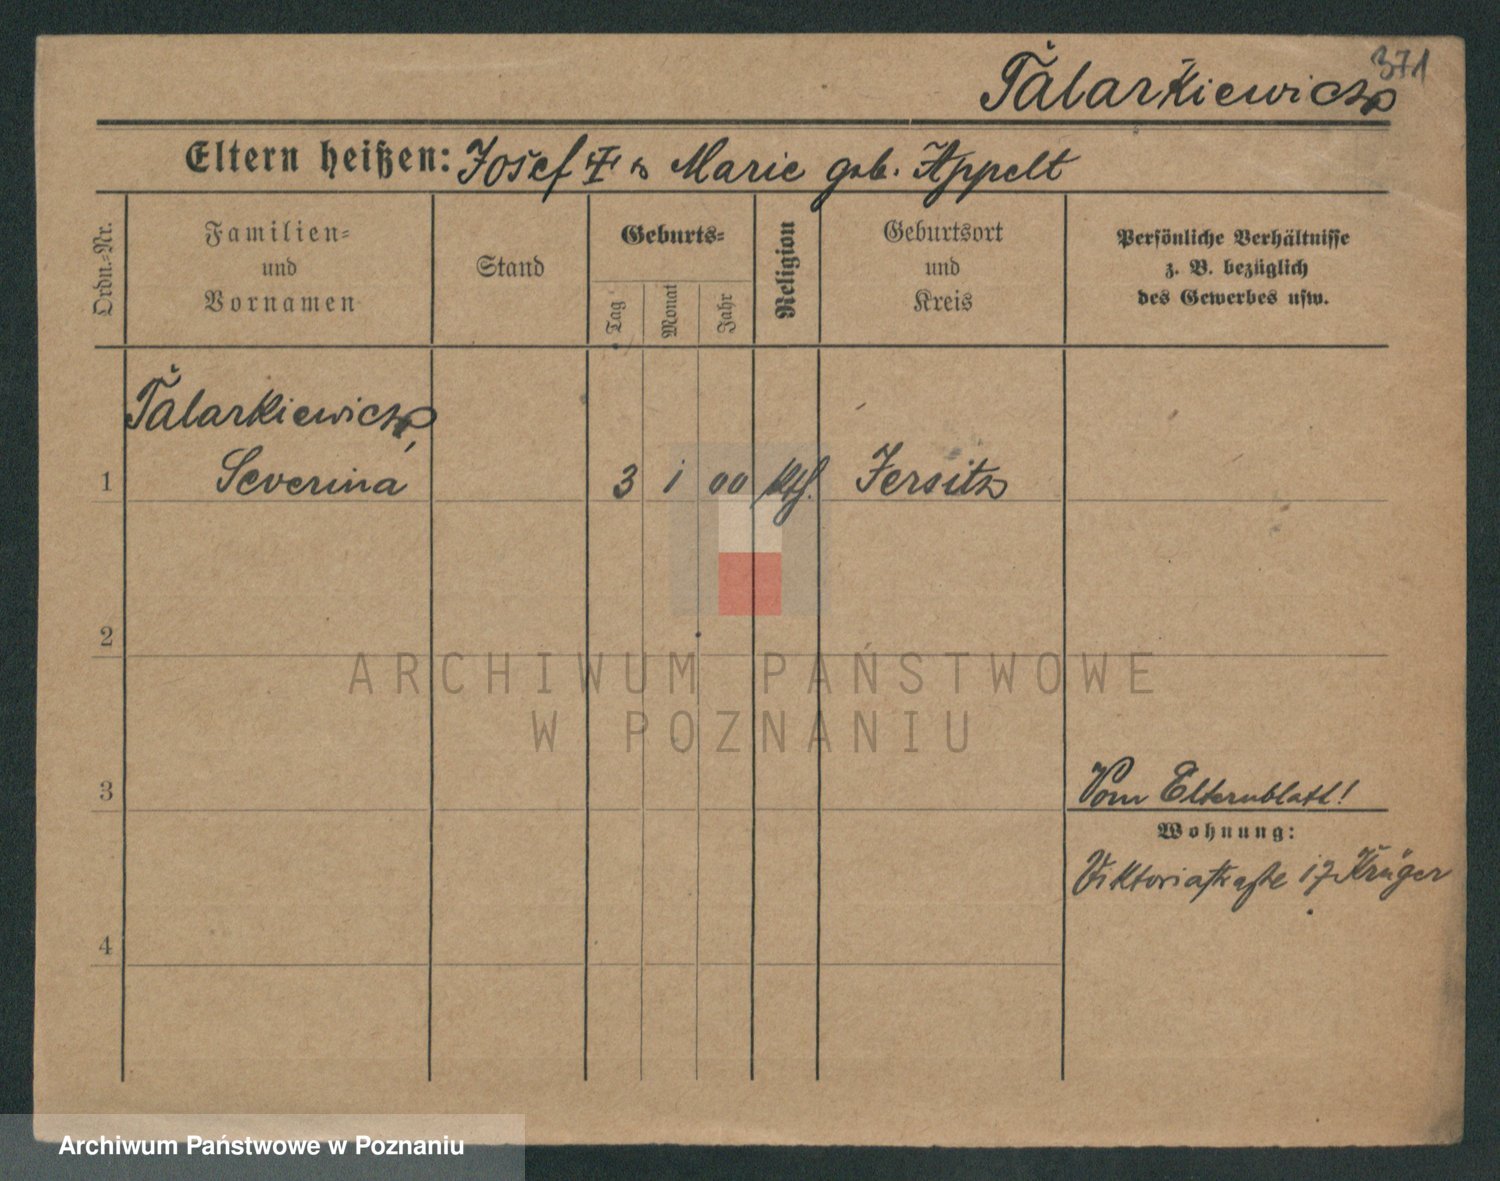 371
Talarkiewicz
Eltern heißen: Josef u Marie geb. Appelt
Ordn.-Nr.
Familien-
und
Vornamen
Stand
Geburts-
Tag
Monat
Jahr
Religion
Geburtsort
und
Kreis
Persönliche Verhältnisse
z. B. bezüglich
des Gewerbes usw.
Talarkiewicz,
1 Severina 3 1 00 kth. Jersitz
2
ARCHIWUM PAŃSTWOWE
W POZNANIU
3 Vom Elternblatt!
Wohnung:
Viktoriastraße 17 Krüger
4
Archiwum Państwowe w Poznaniu